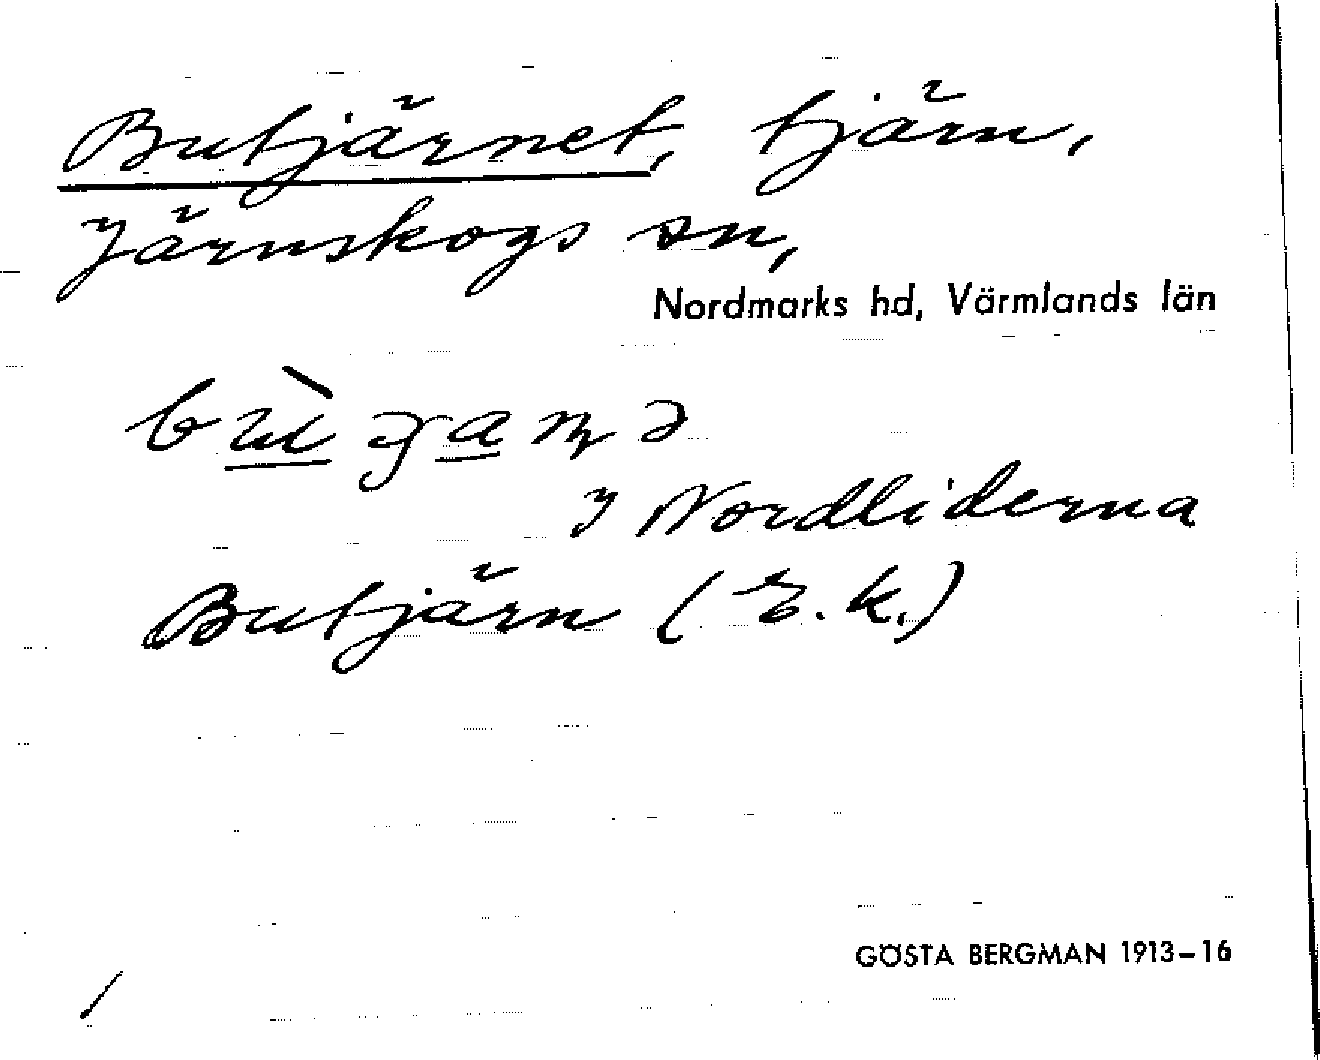 Butjärnet, tjärn,
Järnskogs sn,
Nordmarks hd, Värmlands län
I Nordliderna
Butjärn (E.k.)
GÖSTA BERGMAN 1913-16